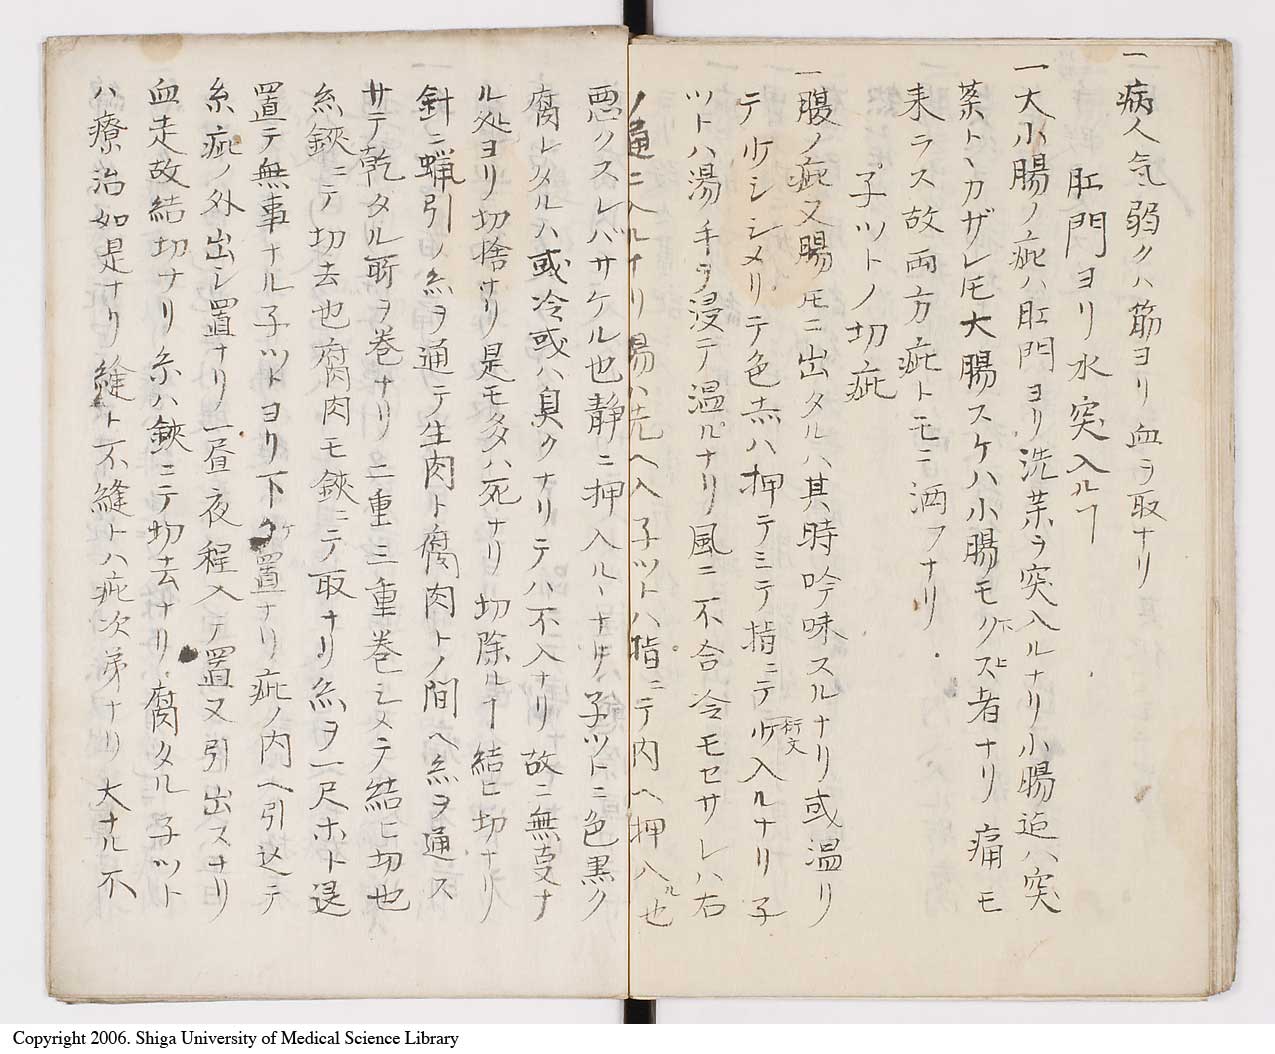 一病人気弱クハ筋ヨリ血ヲ取ナリ
肛門ヨリ水突入ルヿ
一大小腸ノ疵ハ肛門ヨリ洗薬ヲ突入ルナリ小腸迠ハ突
薬トヽカザレ𪜈大腸スケハ小腸モクス者ナリ痛モ
来ラス故両方疵トモニ洒フナリ
子ツトノ切疵
一腹ノ疵又腸モニ出タルハ其時吟味スルナリ或温リ
テ少シシメリテ色赤ハ押テミテ指ニテ少入ルナリ子
ツトハ湯手ヲ浸テ温ルナリ風ニ不合冷モセサレハ右
ノ通ニ入ルナリ腸ハ先ヘ入子ツトハ指ニテ内ヘ押入ル也
悪クスレバサケル也静ニ押入ルヽナリ子ツトニ色黒ク
腐レタルハ或冷或ハ臭クナリテハ不入ナリ故ニ無事ナ
ル処ヨリ切捨ナリ是モ多ハ死ナリ切除ルヿ結ヒ切ナリ
針ニ蝋引ノ糸ヲ通テ生肉ト腐肉トノ間ヘ糸ヲ通ス
サテ乾タル所ヲ巻ナリ二重三重巻シメテ結ヒ切也
糸鋏ニテ切去也腐肉モ鋏ニテ取ナリ糸ヲ一尺ホト
置テ無事ナル子ツトヨリ下ケ置ナリ疵ノ内ヘ引込テ
糸疵ノ外出シ置ナリ一昼夜程入テ置又引出スナリ
血走故結切ナリ糸ハ鋏ニテ切去ナリ腐タル子ツト
ハ療治如是ナリ縫ト不縫トハ疵次第ナリ大ナル不
衍文